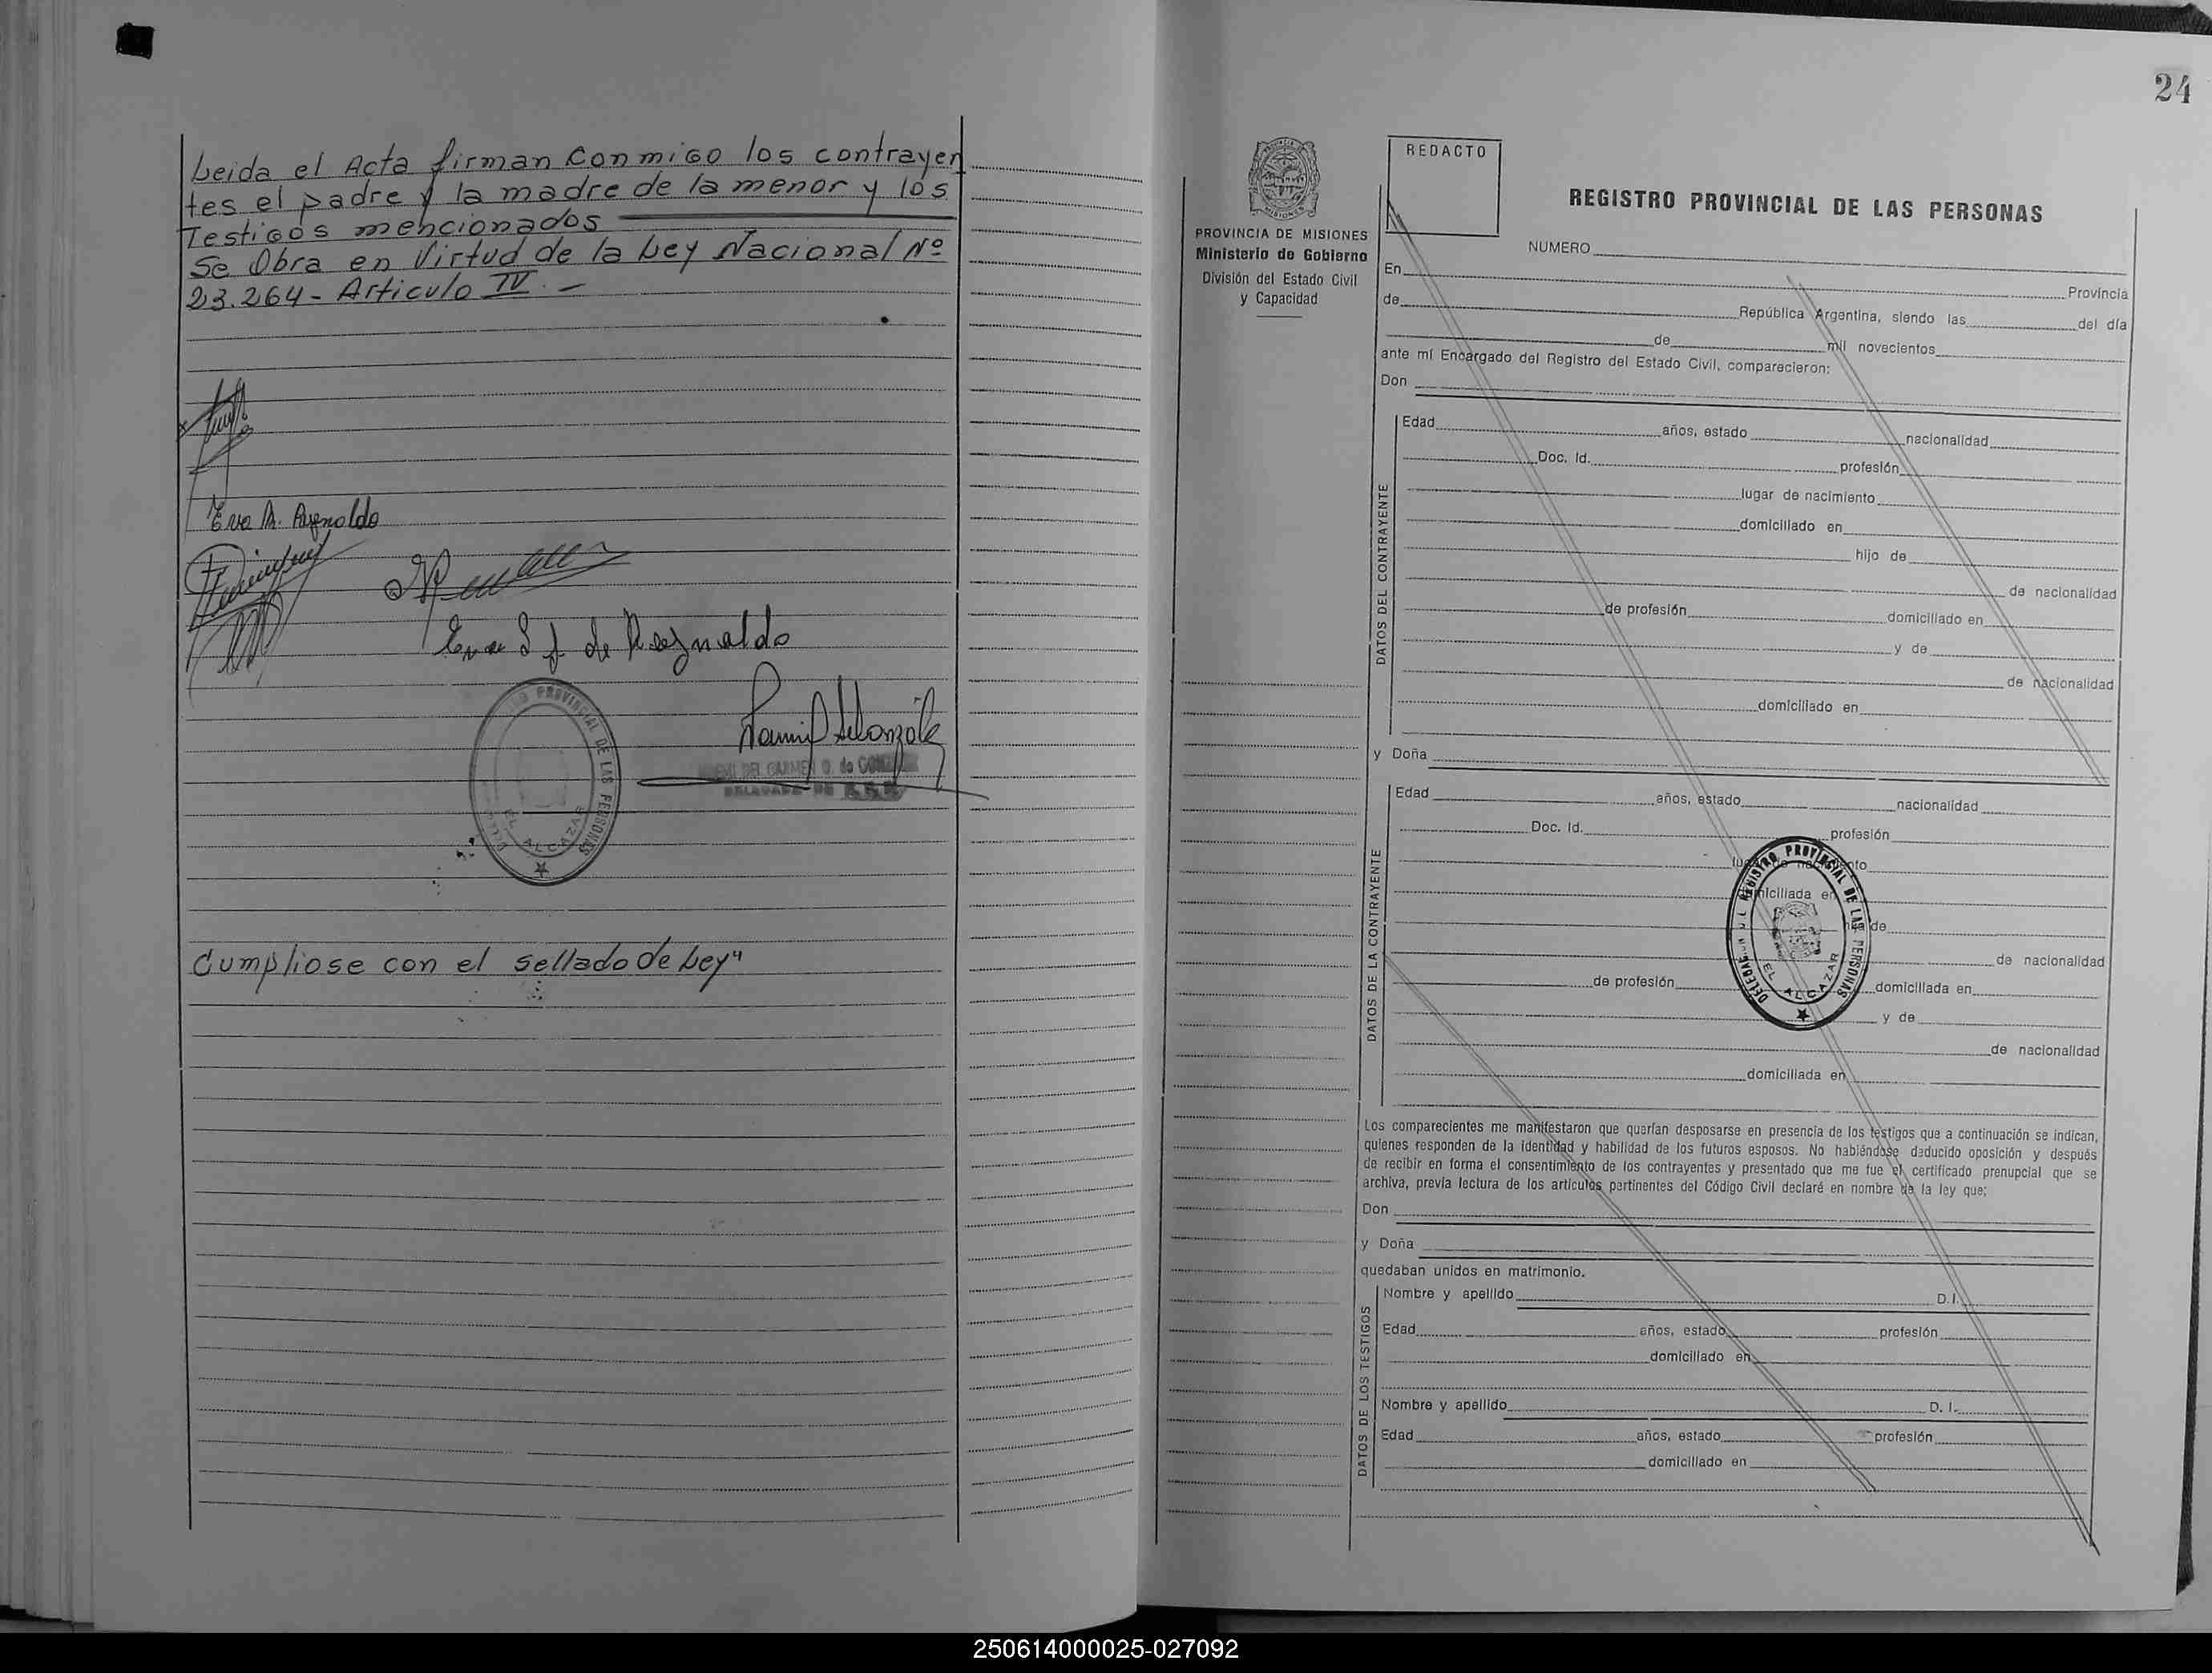 Leida el Acta firman conmigo los contrayen
tes el padre y la madre de la menor y los
Testigos mencionados
Se Obra en Virtud de la Ley Nacional Nº
23.264 - Articulo IV. -
Eva R. Reynoldo
Eva S f de Reynaldo
PROVINCIAL DE LAS PERSONAS
EL ALCAZAR
DEL CARMEN O. de
DELEGADA DE
Cumpliose con el sellado de Ley"
24
PROVINCIA DE MISIONES
Ministerio de Gobierno
División del Estado Civil
y Capacidad
REDACTO
REGISTRO PROVINCIAL DE LAS PERSONAS
NUMERO
En Provincia
de República Argentina, siendo las del día
de mil novecientos
ante mí Encargado del Registro del Estado Civil, comparecieron:
Don
DATOS DEL CONTRAYENTE
Edad años, estado nacionalidad
Doc. Id. profesión
lugar de nacimiento
domiciliado en
hijo de
de nacionalidad
de profesión domiciliado en
y de
de nacionalidad
domiciliado en
y Doña
DATOS DE LA CONTRAYENTE
Edad años, estado nacionalidad
Doc. Id. profesión
lugar de nacimiento
domiciliada en
hija de
de nacionalidad
de profesión domiciliada en
y de
de nacionalidad
domiciliada en
DELEGACION DEL REGISTRO PROVINCIAL DE LAS PERSONAS
EL ALCAZAR
Los comparecientes me manifestaron que querían desposarse en presencia de los testigos que a continuación se indican,
quienes responden de la identidad y habilidad de los futuros esposos. No habiéndose deducido oposición y después
de recibir en forma el consentimiento de los contrayentes y presentado que me fue el certificado prenupcial que se
archiva, previa lectura de los artículos pertinentes del Código Civil declaré en nombre de la ley que;
Don
y Doña
quedaban unidos en matrimonio.
DATOS DE LOS TESTIGOS
Nombre y apellido D. I.
Edad años, estado profesión
domiciliado en
Nombre y apellido D. I.
Edad años, estado profesión
domiciliado en
250614000025-027092